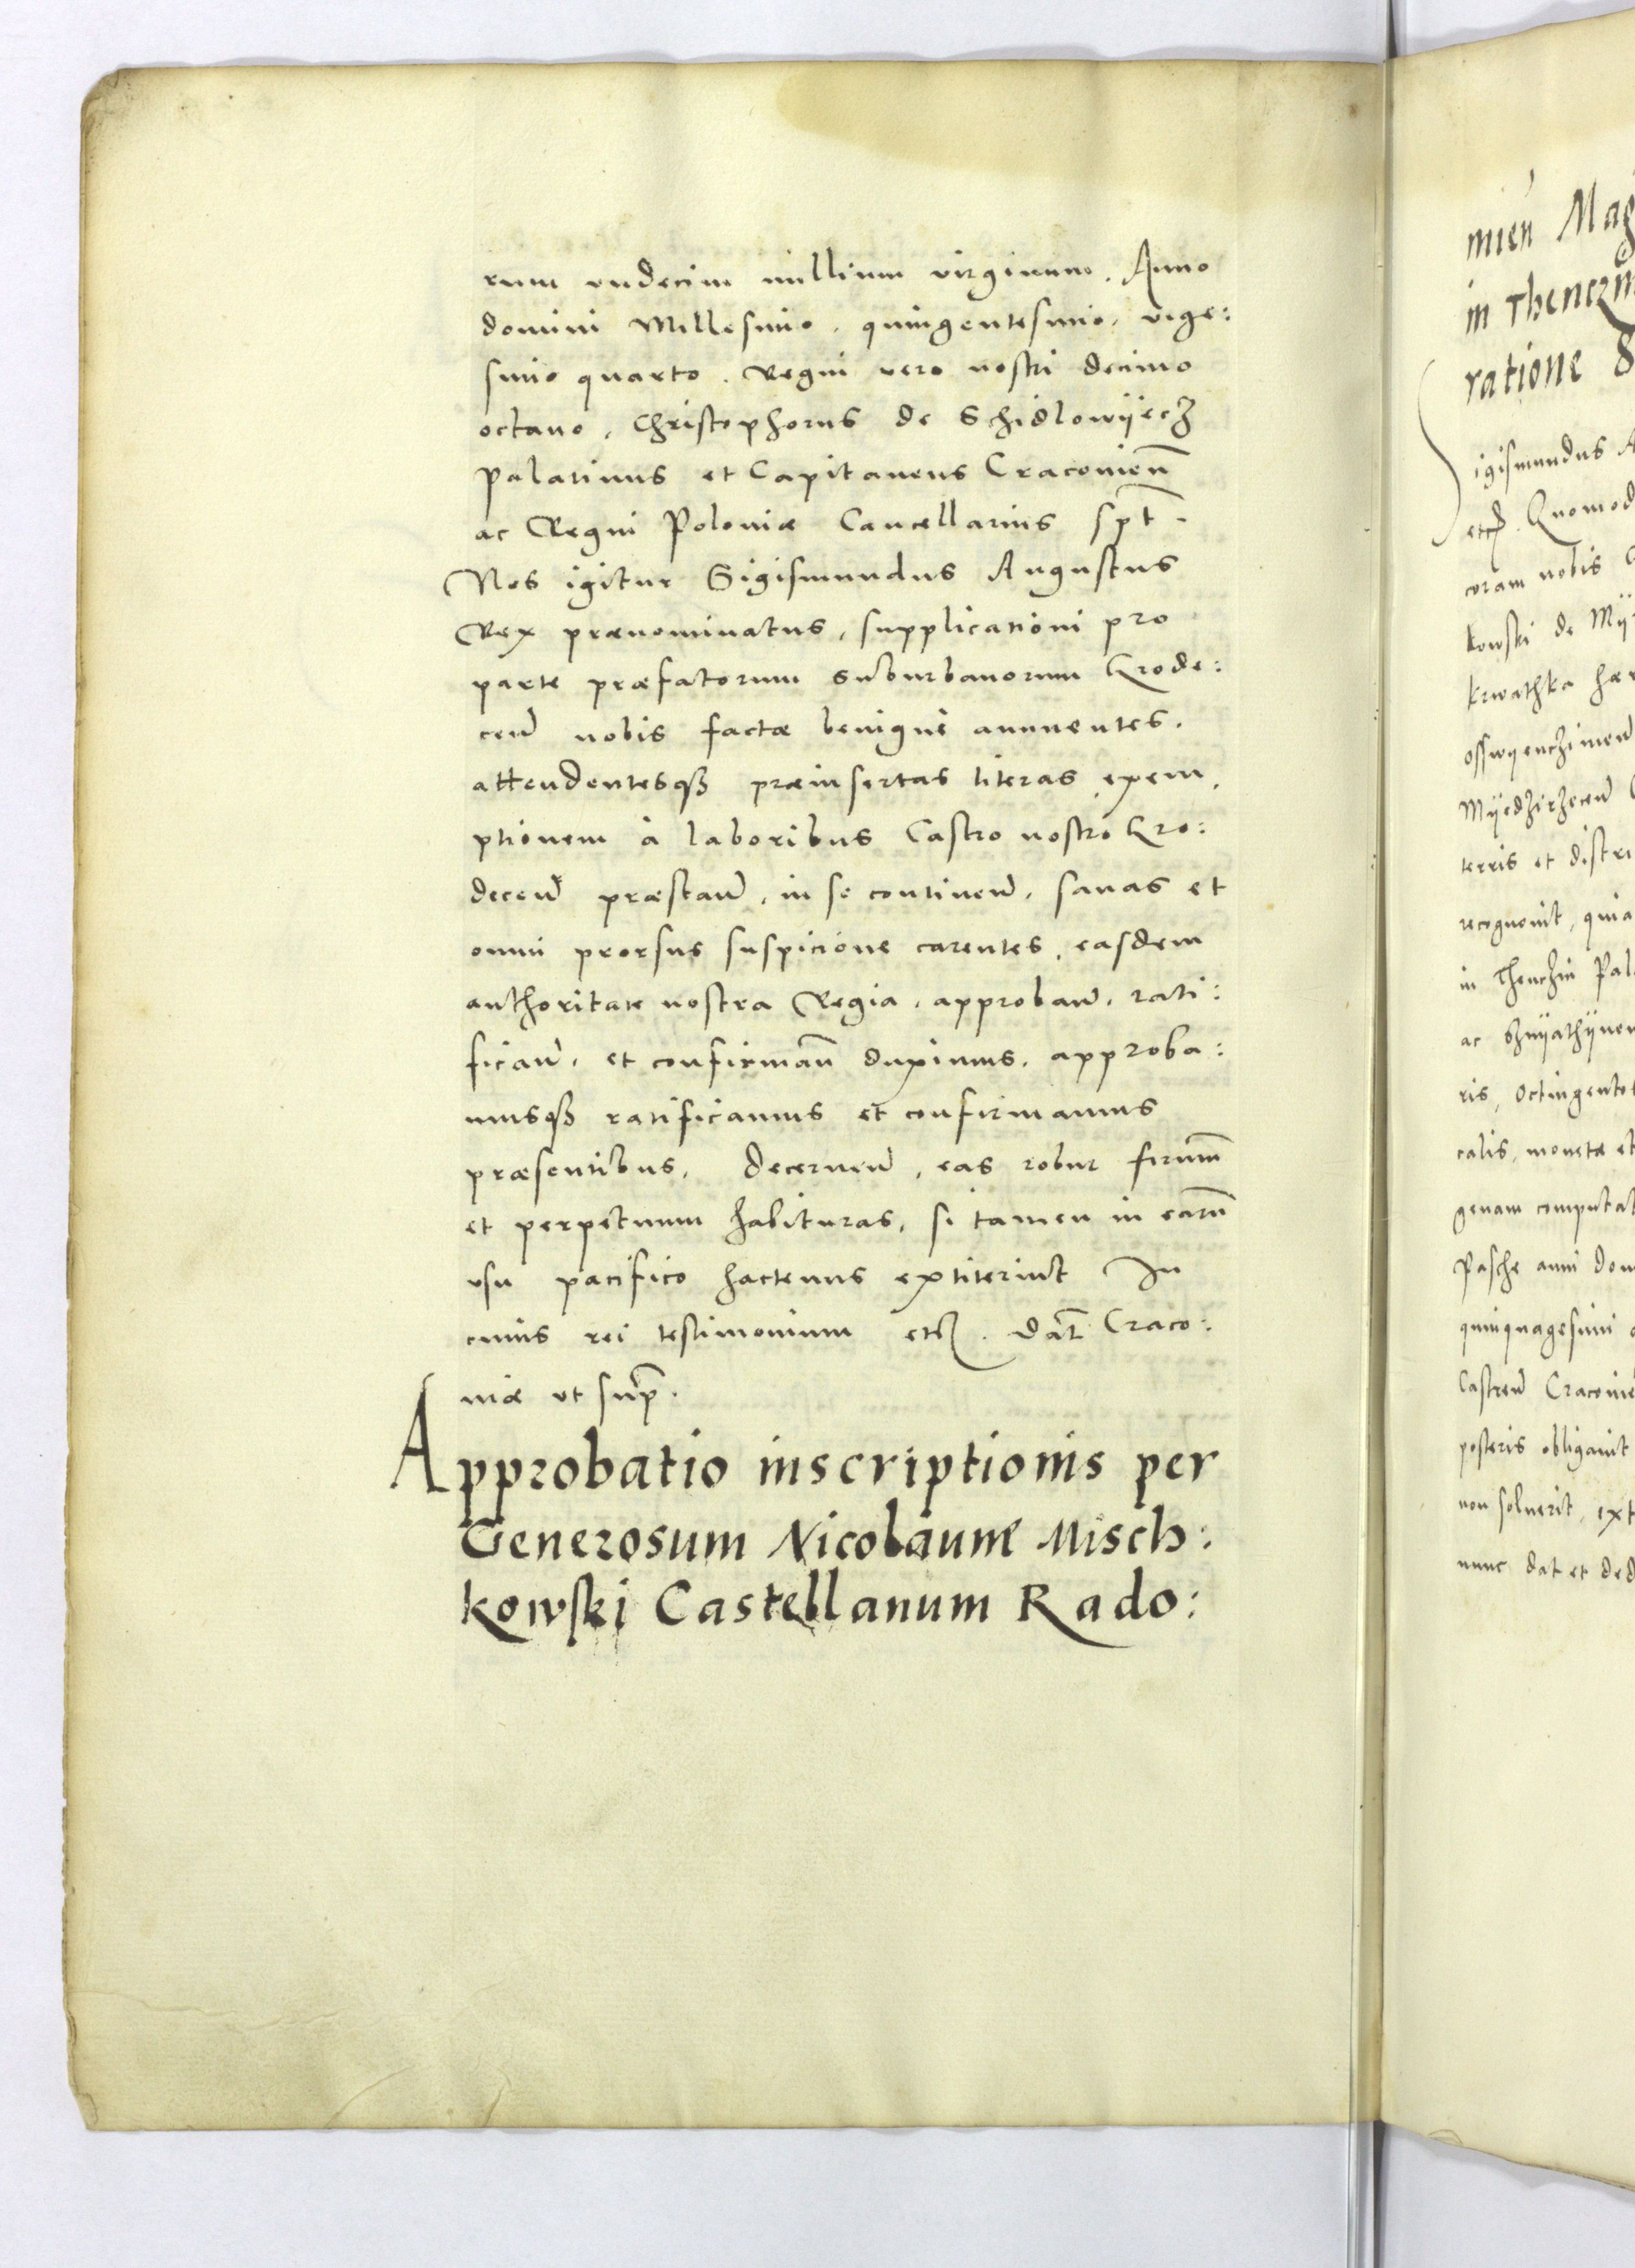 rum undecim millium virginum. Anno
domini Millesimo. quingentesimo. vige:
simo quarto. Regni vero nostri decimo
octauo, Christophorus de Schidlowyecz
Palatinus et Capitaneus Craconien̄
ac Regni Poloniæ Cancellarius spt̄.
Nos igitur Sigismundus Augustus
Rex prænominatus, supplicationi pro
parte præfatorum suburbanorum Grode:
cen̄ nobis factæ benignè annuentes.
attendentesqȝ præinsertas literas exem,
ptionem à laboribus Castro nostro Gro:
decen̄ præstan̄, in se continen̄. sanas et
omni prorsus suspicione carentes, easdem
authoritate nostra Regia. approban̄. rati:
fican̄. et confirman̄ duximus. approba:
musqȝ ratificamus et confirmamus
præsentibus. decernen̄, eas robur firmum̄
et perpetuum habituras, si tamen in earum̄
usu pacifico hactenus extiterint In
cuius rei testimonium etc. Dat̄ Craco:
niæ ut sup̄.
Approbatio inscriptionis per
Generosum Nicolaum Misch:
kowski Castellanum Rado:
mien̄ Mag
in Thenczin
ratione
igismundus A
etc. Quomod
coram nobis
kowski de Myr
Krwathka hær
osswyenczimen̄
Myedzirzecen̄
terris et distri
recognouit, quia
in Thenczin Pal
ac
ris, Octingentos
calis, monetæ et
genam computat
Pasche anni dom
quinquagesimi
Castren̄ Craconie
posteris obligauit
non soluerit, ext
nunc dat et ded